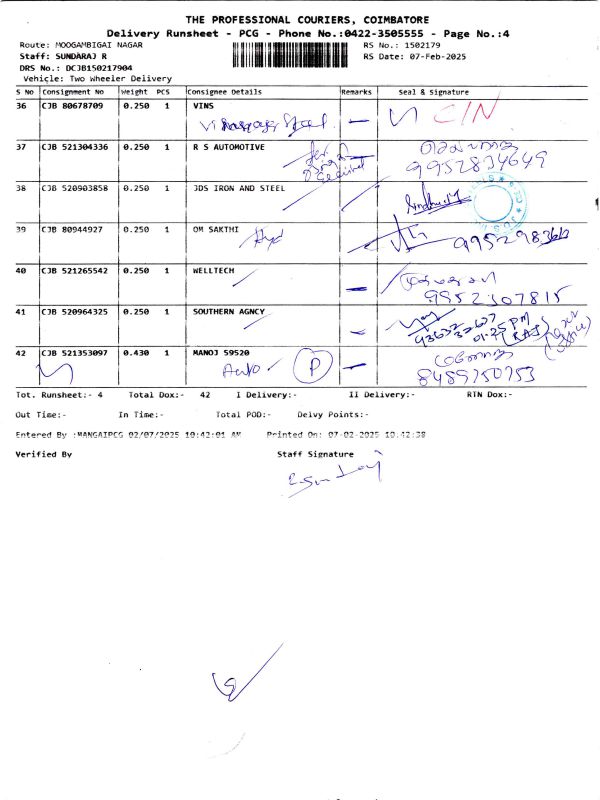 THE PROFESSIONAL COURIERS, COIMBATORE
Delivery Runsheet - PCG - Phone No.:0422-3505555 - Page No.:4
Route: MOOGAMBIGAI NAGAR RS No.: 1502179
Staff: SUNDARAJ R RS Date: 07-Feb-2025
DRS No.: DCJB150217904
Vehicle: Two Wheeler Delivery
S No Consignment No Weight PCS Consignee Details Remarks Seal & Signature
36 CJB 80678709 0.250 1 VINS
CIN
37 CJB 521304336 0.250 1 R S AUTOMOTIVE
9952834649
38 CJB 520903858 0.250 1 JDS IRON AND STEEL
39 CJB 80944927 0.250 1 OM SAKTHI
40 CJB 521265542 0.250 1 WELLTECH
9952307815
41 CJB 520964325 0.250 1 SOUTHERN AGNCY
01.25 PM
(RAJ)
42 CJB 521353097 0.430 1 MANOJ 59520
Auto P
8489750753
Tot. Runsheet:- 4 Total Dox:- 42 I Delivery:- II Delivery:- RTN Dox:-
Out Time:- In Time:- Total POD:- Delvy Points:-
Entered By :MANGAIPCG 02/07/2025 10:42:01 AM Printed On: 07-02-2025 10:42:39
Verified By Staff Signature